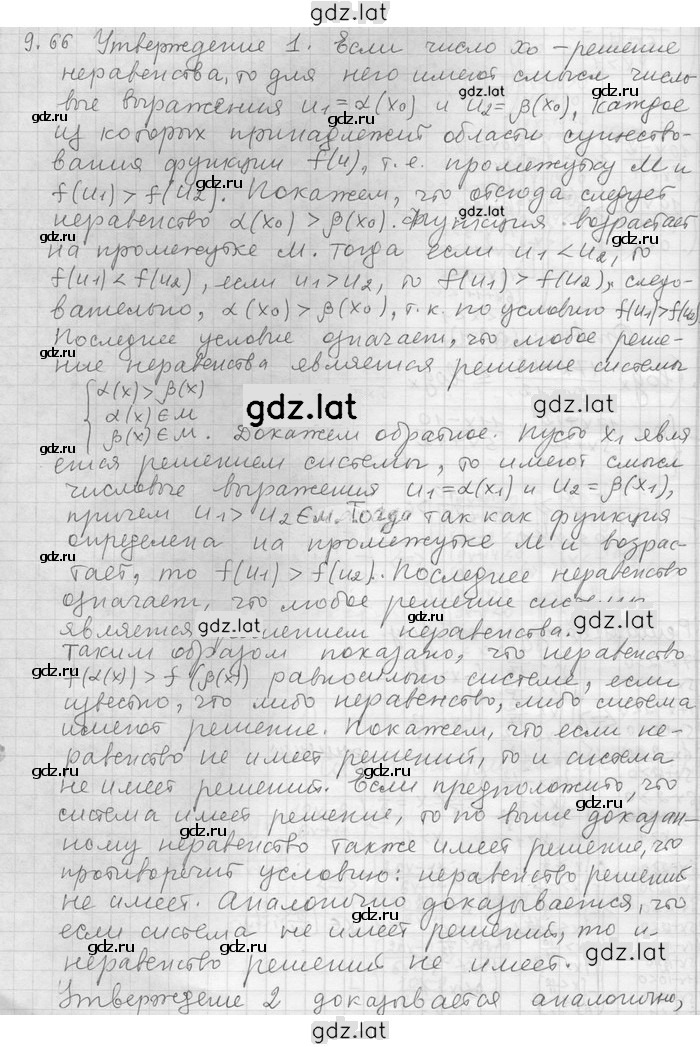 gdz.lat
9.66 Утверждение 1. Если число x₀ – решение
неравенства, то для него имеют смысл число-
вые выражения u₁ = α(x₀) и u₂ = β(x₀), каждое
из которых принадлежит области существо-
вания функции f(u), т.е. промежутку M и
f(u₁) > f(u₂). Покажем, что отсюда следует
неравенство α(x₀) > β(x₀). Функция возрастает
на промежутке M. Тогда если u₁ < u₂, то
f(u₁) < f(u₂), если u₁ > u₂, то f(u₁) > f(u₂), следо-
вательно, α(x₀) > β(x₀), т.к. по условию f(u₁) > f(u₂)
Последнее условие означает, что любое реше-
ние неравенства является решение системы
α(x) > β(x)
α(x) ∈ M
β(x) ∈ M. Докажем обратное. Пусть x₁ явля
ется решением системы, то имеют смысл
числовые выражения u₁ = α(x₁) и u₂ = β(x₁),
причем u₁ > u₂ ∈ M. Тогда так как функция
определена на промежутке M и возрас-
тает, то f(u₁) > f(u₂). Последнее неравенство
означает, что любое решение системы
является решением неравенства.
Таким образом показано, что неравенство
f(α(x)) > f(β(x)) равносильно системе, если
известно, что либо неравенство, либо система
имеют решение. Покажем, что если не-
равенство не имеет решений, то и система
не имеет решений. Если предположить, что
система имеет решение, то по выше доказан-
ному неравенство также имеет решение, что
противоречит условию: неравенство решений
не имеет. Аналогично доказывается, что
если система не имеет решений, то и
неравенство решений не имеет.
Утверждение 2 доказывается аналогично,
gdz.lat